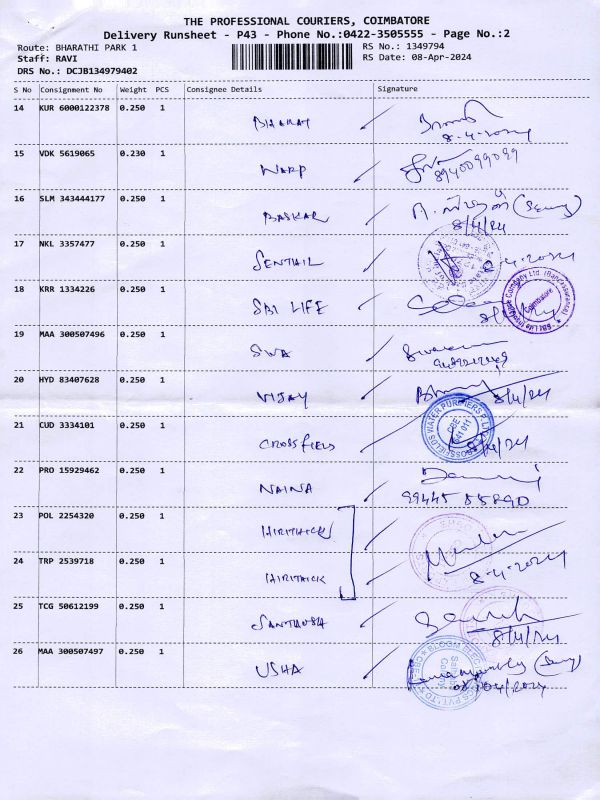 THE PROFESSIONAL COURIERS, COIMBATORE
Delivery Runsheet - P43 - Phone No.:0422-3505555 - Page No.:2
Route: BHARATHI PARK 1 RS No.: 1349794
Staff: RAVI RS Date: 08-Apr-2024
DRS No.: DCJB134979402
S No Consignment No Weight PCS Consignee Details Signature
14 KUR 6000122378 0.250 1 BHARAT
8-4-2024
15 VDK 5619065 0.230 1 WARP
8940099099
16 SLM 343444177 0.250 1 BASKAR
8/4/24
17 NKL 3357477 0.250 1 SENTHIL 8-4-2024
18 KRR 1334226 0.250 1 SBI LIFE
SBI Life Insurance Company Ltd. (Bancassurance)
Coimbatore
19 MAA 300507496 0.250 1 SWA
20 HYD 83407628 0.250 1 VIJAY 8/4/24
21 CUD 3334101 0.250 1 CROSSFIELD 8/4/24
CROSSFIELDS WATER PURIFIERS P LTD
CBE
641 011
22 PRO 15929462 0.250 1 NAINA
99445 55890
23 POL 2254320 0.250 1 HIRITHICK
24 TRP 2539718 0.250 1 HIRITHICK 8-4-2024
25 TCG 50612199 0.250 1 SANTHOSH
8/4/24
26 MAA 300507497 0.250 1 USHA
08/04/2024